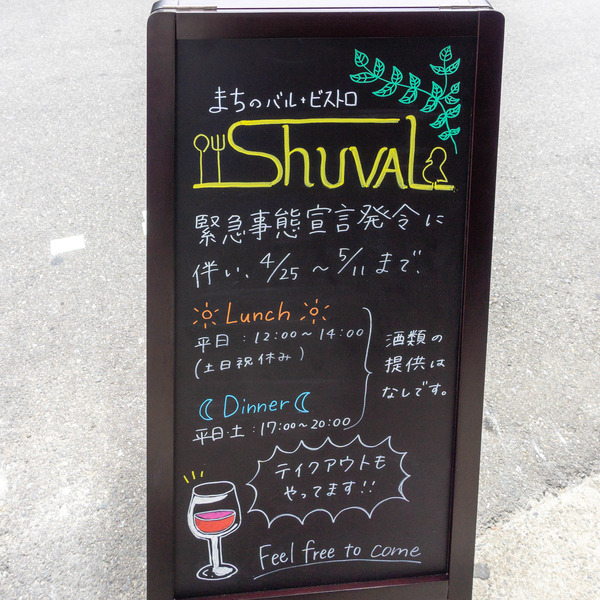 まちのバル+ビストロ
Shuval
緊急事態宣言発令に
伴い、4/25～5/11まで、
Lunch
平日：12:00～14:00
(土日祝休み)
Dinner
平日・土：17:00～20:00
酒類の
提供は
なしです。
テイクアウトも
やってます!!
Feel free to come